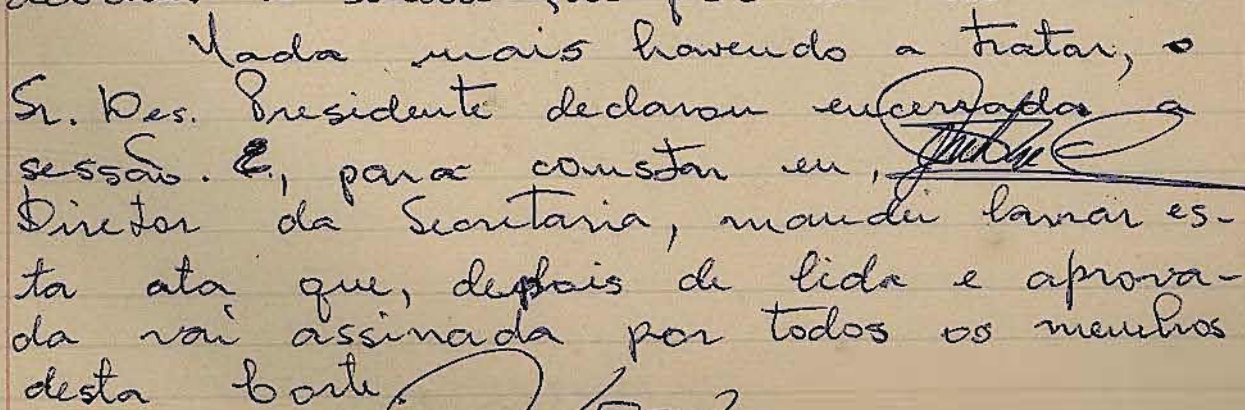 Nada mais havendo a tratar, o
Sr. Des. Presidente declarou encerrada a
sessão. E, para constar eu,
Diretor da Secretaria, mandei lavrar es-
ta ata que, depois de lida e aprova-
da vai assinada por todos os membros
desta Corte.